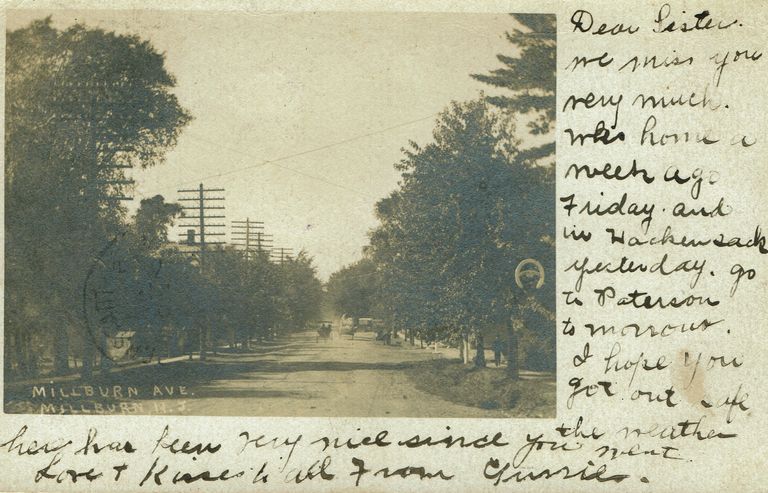 Dear Sister.
we miss you
very much.
Was home a
week ago
Friday. and
in Hackensack
yesterday. go
to Paterson
to morrow.
I hope you
got out safe
the weather
here has been very nice since you went
Love & Kisses to all From
MILLBURN AVE.
MILLBURN N.J.